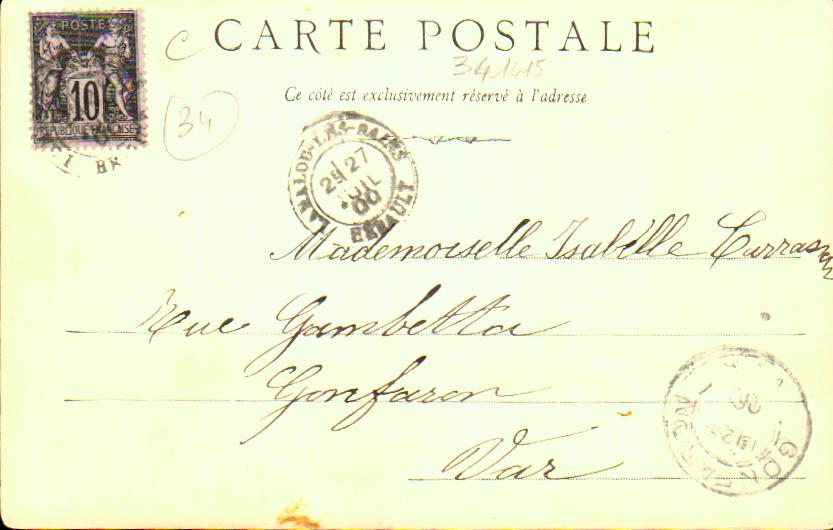 POSTES
10
RÉPUBLIQUE FRANÇAISE
C
CARTE POSTALE
341415
Ce côté est exclusivement réservé à l'adresse
34
LAMALOU-LES-BAINS
27
JUIL
00
HERAULT
Mademoiselle Isabelle
Rue Gambetta
Gonfaron
Var